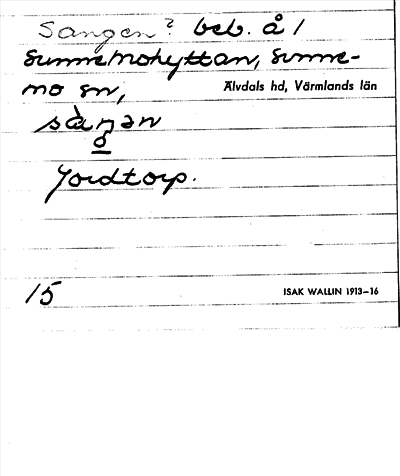 Sangen? beb. å /
Sunnemohyttan, Sunne-
mo sn, Älvdals hd, Värmlands län
sàŋən
o
Jordtorp.
15 ISAK WALLIN 1913–16